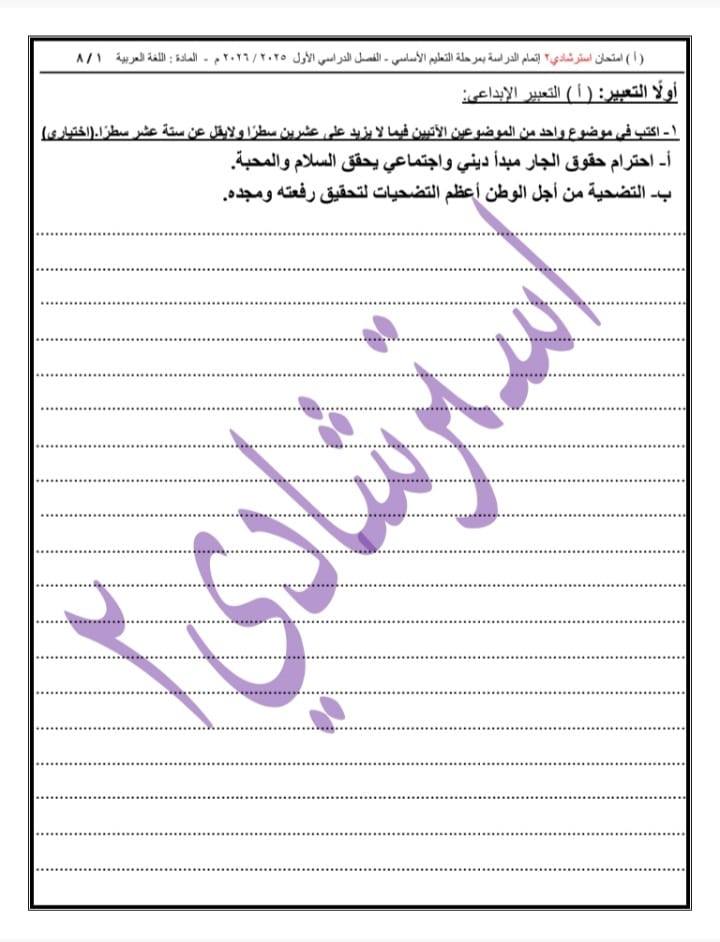 ( أ ) امتحان استرشادي٢ إتمام الدراسة بمرحلة التعليم الأساسي - الفصل الدراسي الأول ٢٠٢٥ / ٢٠٢٦ م - المادة : اللغة العربية ١ / ٨
أولًا التعبير: ( أ ) التعبير الإبداعى:
١- اكتب في موضوع واحد من الموضوعين الآتيين فيما لا يزيد على عشرين سطرًا ولايقل عن ستة عشر سطرًا.(اختياري)
أ- احترام حقوق الجار مبدأ ديني واجتماعي يحقق السلام والمحبة.
ب- التضحية من أجل الوطن أعظم التضحيات لتحقيق رفعته ومجده.
استرشادي ٢